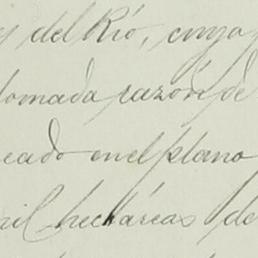 del Río, cuya
tomada razón de
cado en el plano
mil hectáreas de